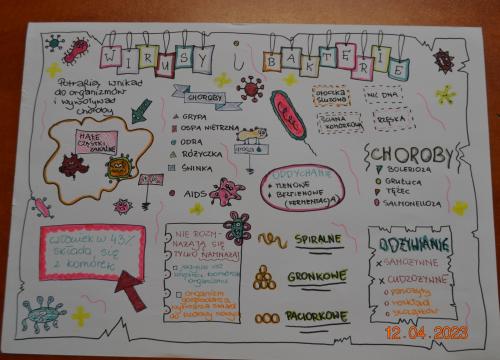 WIRUSY i BAKTERIE
POTRAFIĄ WNIKAĆ
DO ORGANIZMÓW
I WYWOŁYWAĆ
CHOROBY
CHOROBY
GRYPA
OSPA WIETRZNA
ODRA
RÓŻYCZKA
ŚWINKA
AIDS
MAŁE
CZĄSTKI
ZAKAŹNE
CZŁOWIEK W 43%
SKŁADA SIĘ
Z KOMÓREK
NIE ROZM-
NAŻAJĄ SIĘ
TYLKO NAMNAŻAJĄ
organizm
gospodarza
OTOCZKA
ŚLUZOWA
NIĆ DNA
ŚCIANA
KOMÓRKOWA
RZĘSKA
ODDYCHANIE
TLENOWE
BEZTLENOWE
(FERMENTACJA)
CHOROBY
BOLERIOZA
GRUŹLICA
TĘŻEC
SALMONELLOZA
SPIRALNE
GRONKOWE
PACIORKOWE
ODŻYWIANIE
SAMOŻYWNE
CUDZOŻYWNE
pasożyty
rozkład
szczątków
12.04.2023